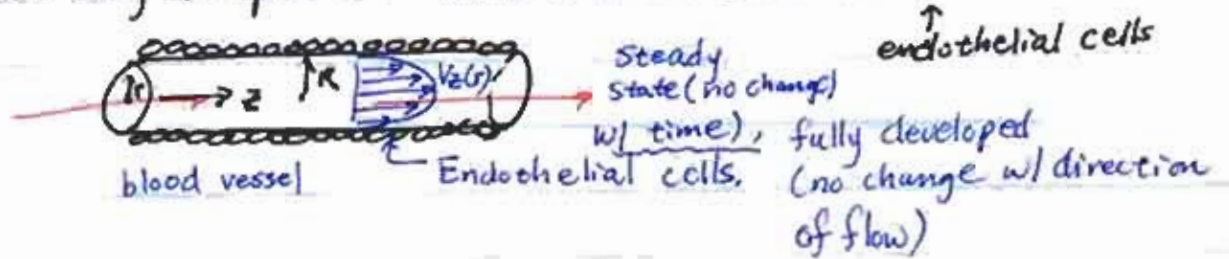 ↑
endothelial cells
r → z
R
Vz(r)
steady
state (no change
w/ time), fully developed
(no change w/ direction
of flow)
blood vessel
Endothelial cells.